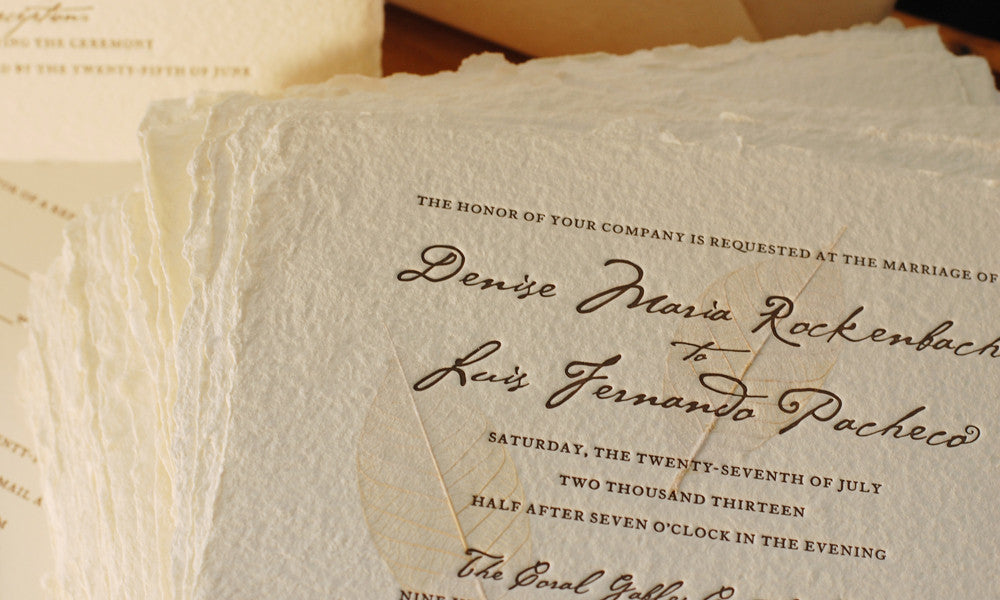 ING THE CEREMONY
D BY THE TWENTY-FIFTH OF JUNE
THE HONOR OF YOUR COMPANY IS REQUESTED AT THE MARRIAGE OF
Denise Maria Rockenbach
to
Luis Fernando Pacheco
SATURDAY, THE TWENTY-SEVENTH OF JULY
TWO THOUSAND THIRTEEN
HALF AFTER SEVEN O'CLOCK IN THE EVENING
The Coral Gables
NINE